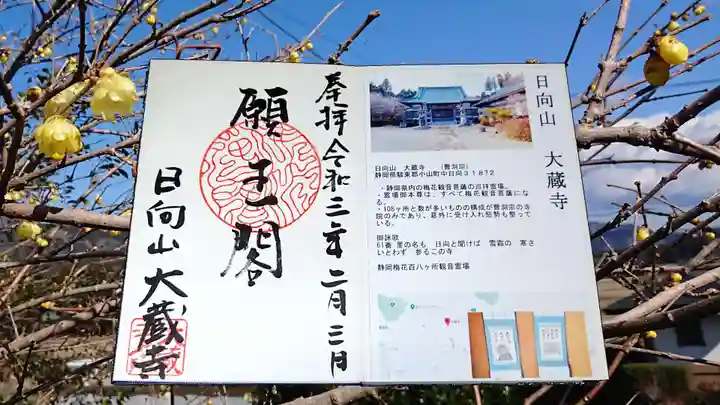 奉拝 令和三年二月三日
願王閣
日向山大蔵寺
日向山 大蔵寺
日向山 大蔵寺 (曹洞宗)
静岡県駿東郡小山町中日向31872
・静岡県内の梅花観音菩薩の巡拝霊場。
・霊場御本尊は、すべて梅花観音菩薩にな
る。
・108ヶ所と数が多いものの構成が曹洞宗の寺
院のみであり、意外に受け入れ態勢も整って
いる。
御詠歌
61番 里の名も 日向と聞けば 雪霜の 寒さ
いとわず 参るこの寺
静岡梅花百八ヶ所観音霊場